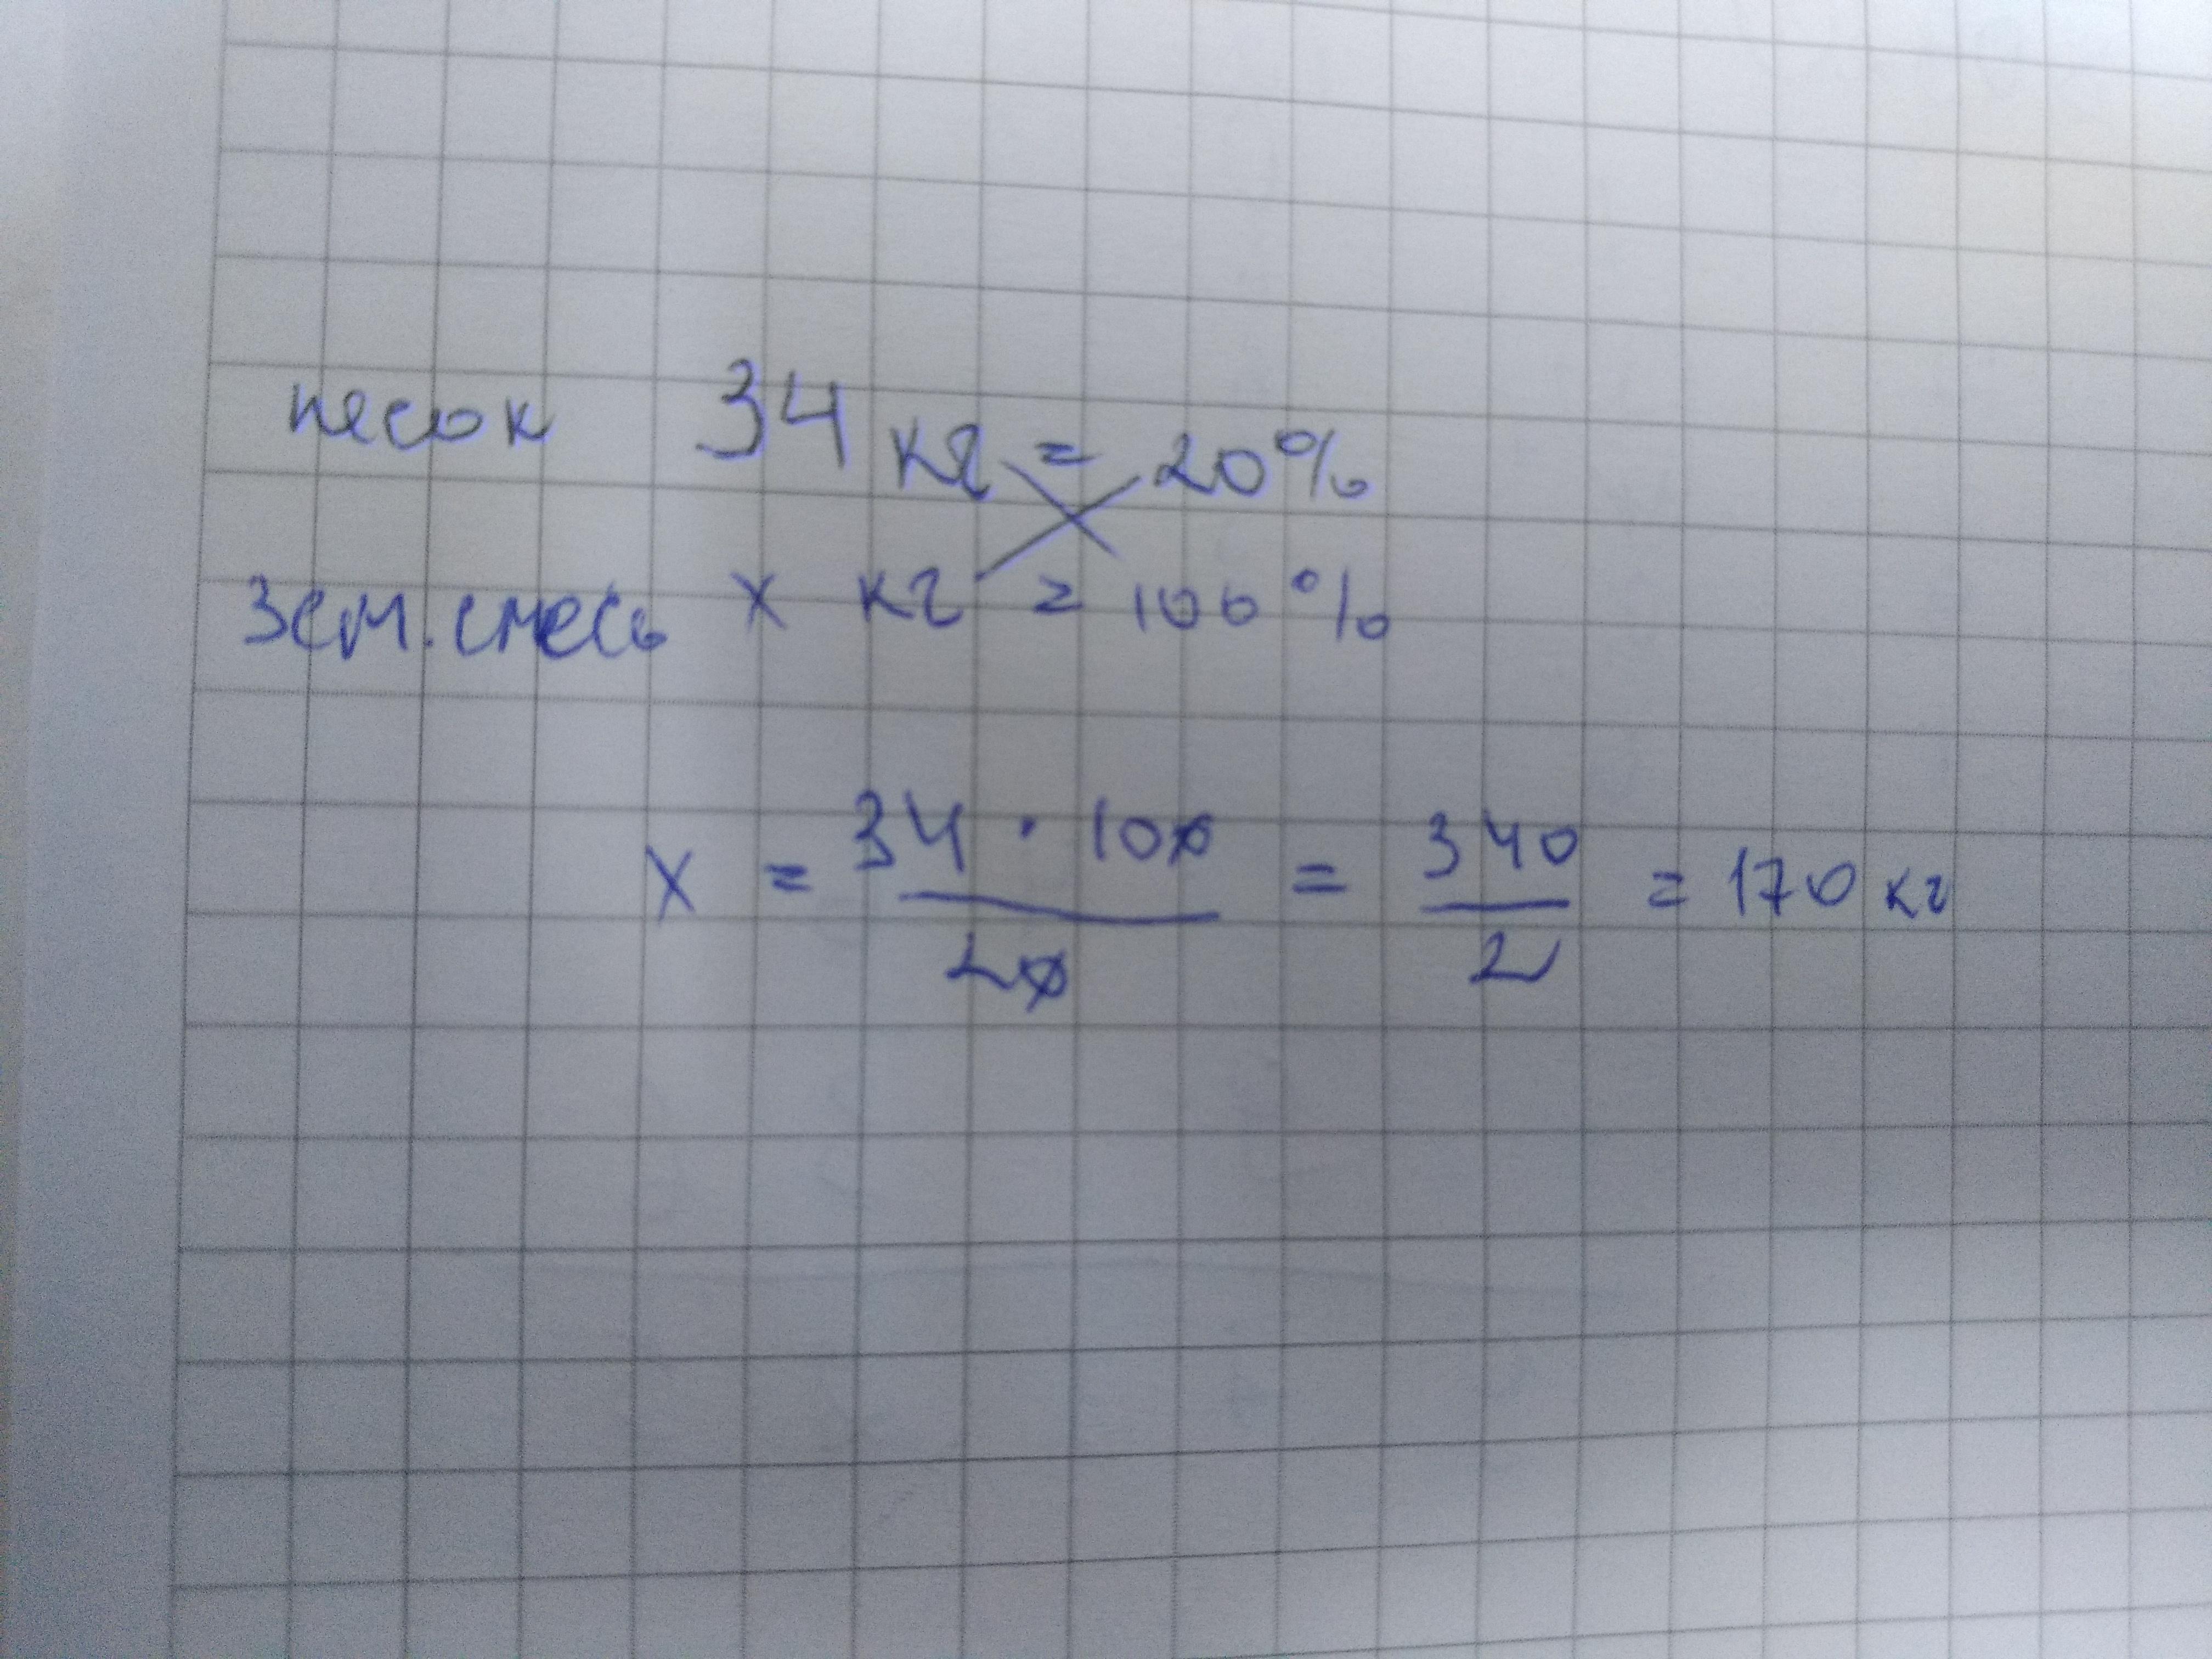 песок 34 кг = 20%
Зем. смесь х кг = 100%
х = 34 · 100 / 20 = 340 / 2 = 170 кг